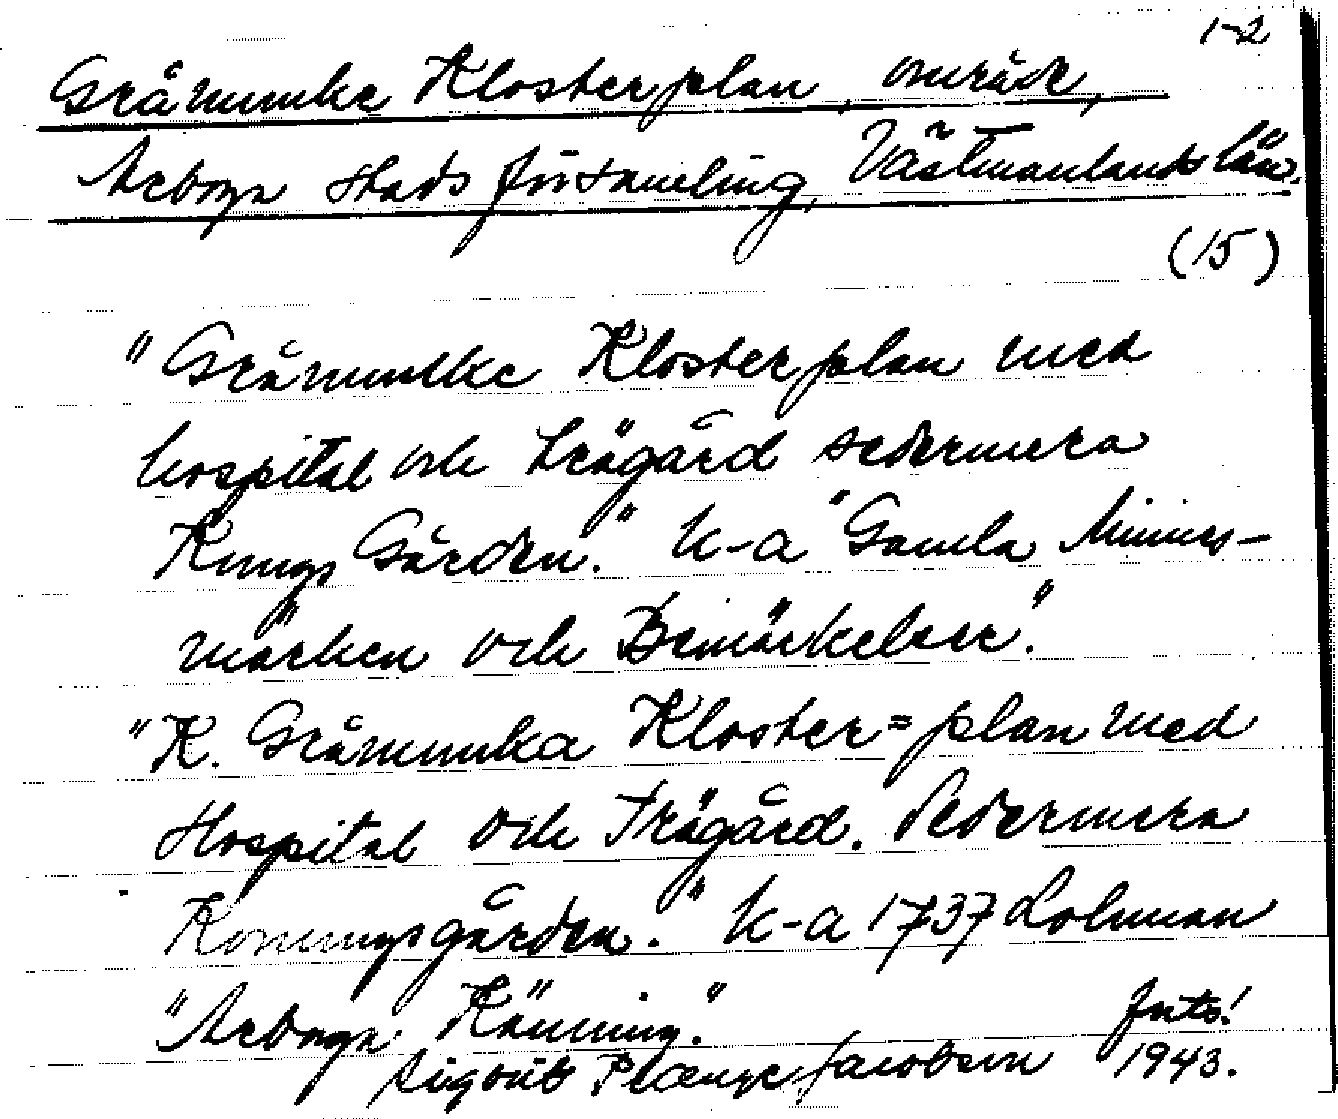 1-2
Gråmunke Klosterplan, område,
Arboga stads församling, Västmanlands län.
(15)
"Gråmunke Klosterplan med
hospital och trägård sedermera
Kungs Gården." k-a "Gamla Minnes-
märken och Bemärkelser."
"K. Gråmunka Kloster=plan med
Hospital och Trägård. Sedermera
Konungsgården." k-a 1737 Lohman
"Arboga Känning."
forts!
Sigrid Jacobson 1943.